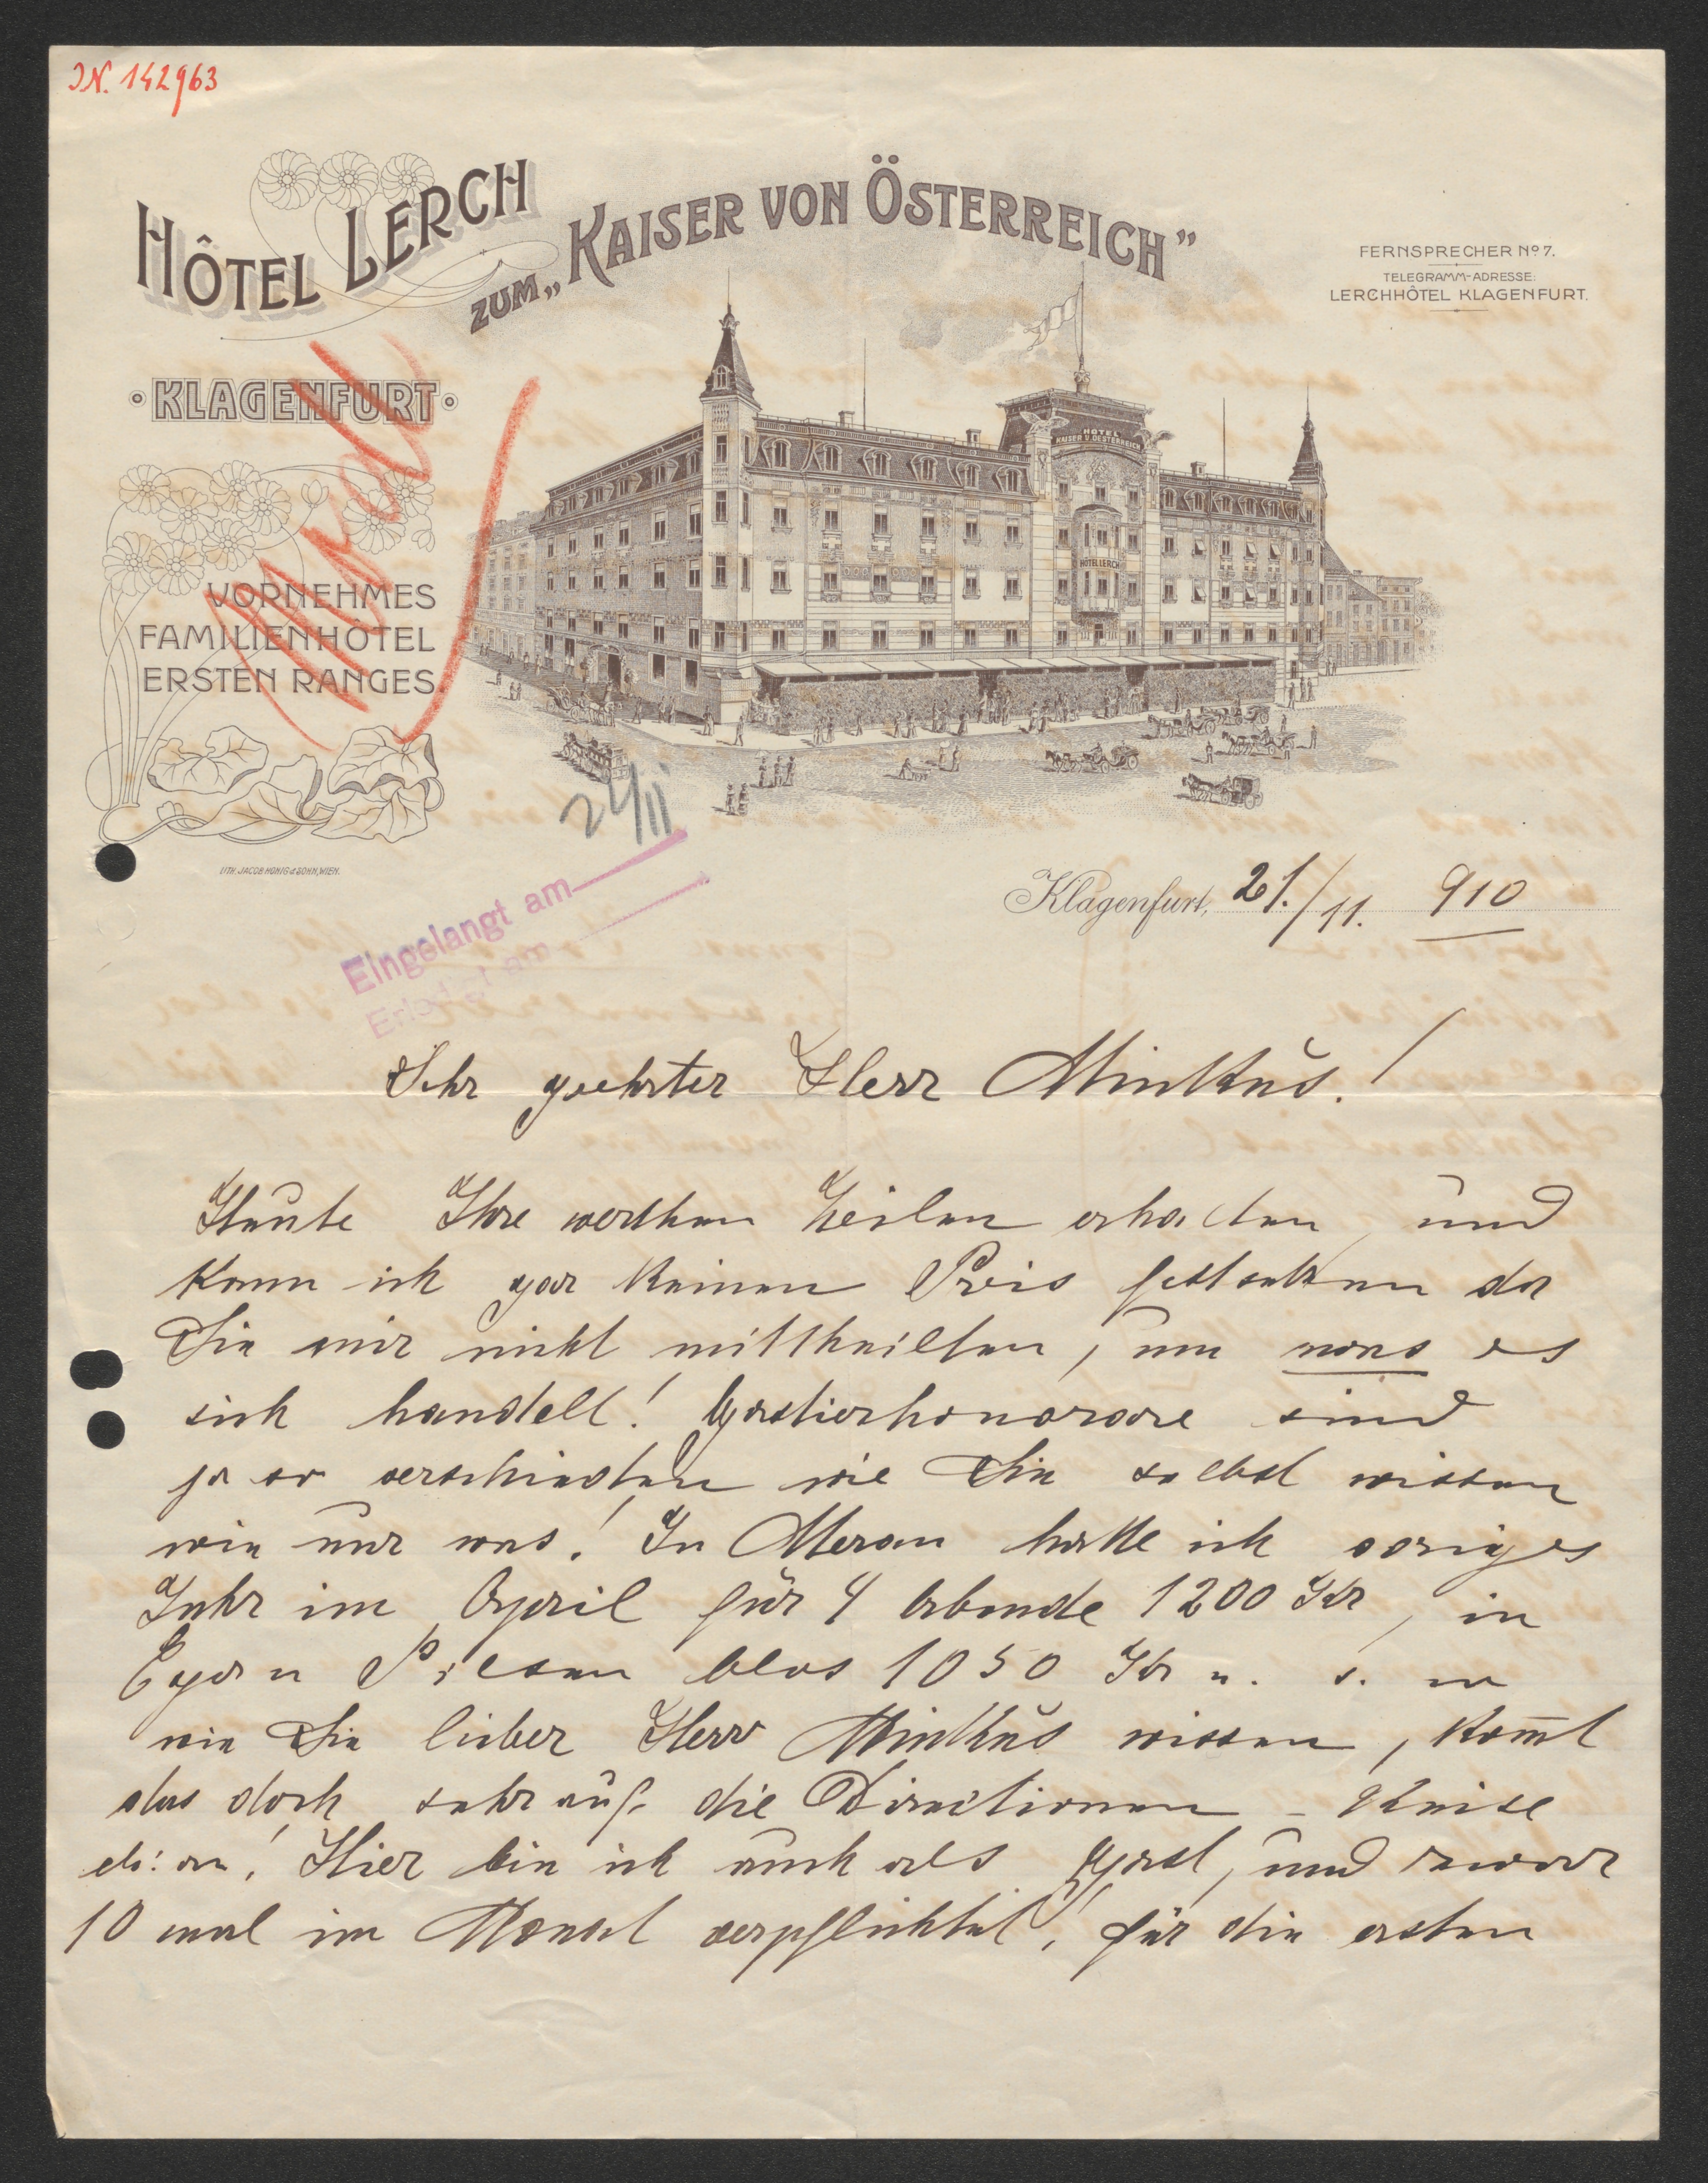 IN. 142963
HÔTEL LERCH
ZUM „KAISER VON ÖSTERREICH”
FERNSPRECHER Nº 7.
TELEGRAMM-ADRESSE:
LERCHHÔTEL KLAGENFURT.
KLAGENFURT
HOTEL
KAISER V. OESTERREICH
HOTEL LERCH
VORNEHMES
FAMILIENHÔTEL
ERSTEN RANGES.
LITH. JACOB HONIG & SOHN, WIEN.
24/11
Eingelangt am
Erledigt am
Klagenfurt, 21./11. 910
Sehr geehrter Herr Minkus!
Heute Ihre werthen Zeilen erhalten, und
kann ich gar keinen Preis festsetzen da
Sie mir nicht mittheilten, um was es
sich handelt! Gastierhonorare sind
ja so verschieden wie Sie selbst wissen
wie nur was! In Meran hatte ich voriges
Jahr im April für 4 Abende 1200 Kr, in
Eger u Pilsen blos 1050 Kr u. s. w
wie Sie lieber Herr Minkus wissen, kom̅t
das doch sehr auf die Directionen - Kreise
etc. an! Hier bin ich auch als Gast, und zwar
10 mal im Monat verpflichtet! für die ersten